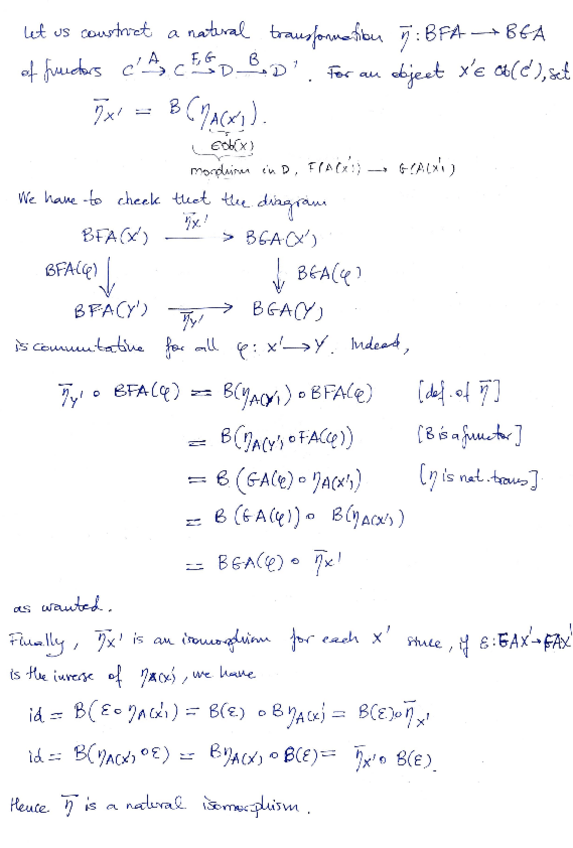 Let us construct a natural transformation η̄ : BFA → BGA
of functors C' →A C →F,G D →B D'. For an object X' ∈ Ob(C'), set
η̄X' = B(ηA(X')).
∈Ob(X)
morphism in D, F(A(X')) → G(A(X'))
We have to check that the diagram
BFA(X') →η̄X' BGA(X')
BFA(φ) ↓ ↓ BGA(φ)
BFA(Y') →η̄Y' BGA(Y)
is commutative for all φ: X' → Y. Indeed,
η̄Y' ∘ BFA(φ) = B(ηA(Y')) ∘ BFA(φ) [def. of η̄]
= B(ηA(Y') ∘ FA(φ)) [B is a functor]
= B(GA(φ) ∘ ηA(X')) [η is nat. trans]
= B(GA(φ)) ∘ B(ηA(X'))
= BGA(φ) ∘ η̄X'
as wanted.
Finally, η̄X' is an isomorphism for each X' since, if ε: GAX' → FAX'
is the inverse of ηA(X'), we have
id = B(ε ∘ ηA(X')) = B(ε) ∘ BηA(X') = B(ε) ∘ η̄X'
id = B(ηA(X') ∘ ε) = BηA(X') ∘ B(ε) = η̄X' ∘ B(ε).
Hence η̄ is a natural isomorphism.